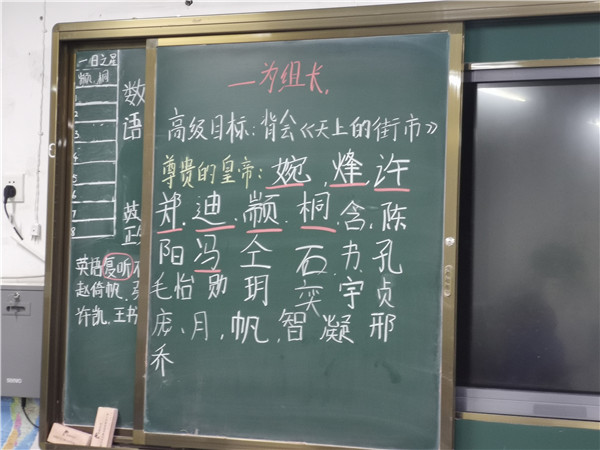 一为组长,
高级目标:背会《天上的街市》
尊贵的皇帝:婉,烽许
郑、迪、颢、桐、含、陈
阳冯仝石力孔
毛怡勋玥奕宇贞
庞、月,帆,智凝邢
乔
一日之星
桐
1
2
3
4
5
6
7
8
数
语
英
英语听
赵倚帆、
许凯,王书